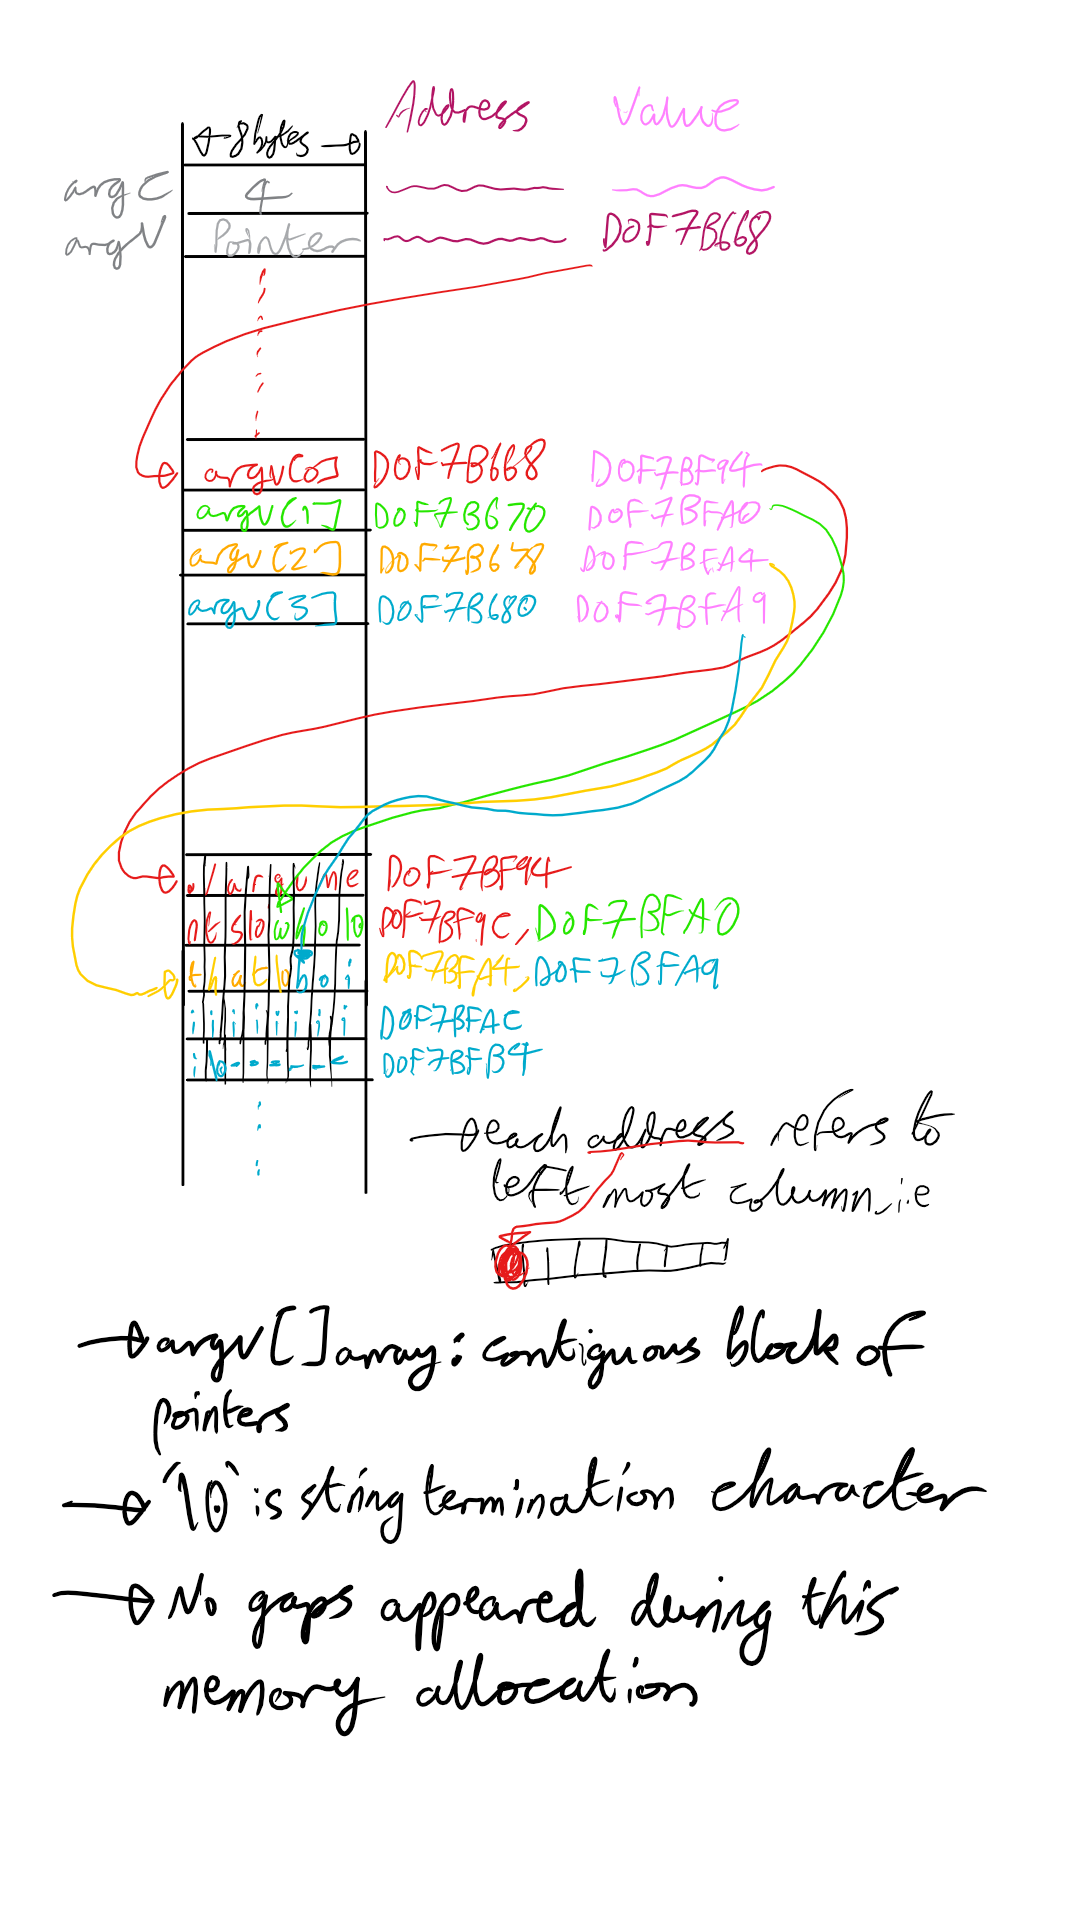 Address Value
8 bytes
argC 4
argV Pointer D0F7B668
argv[0] D0F7B668 D0F7BF94
argv[1] D0F7B670 D0F7BFA0
argv[2] D0F7B678 D0F7BFA4
argv[3] D0F7B680 D0F7BFA9
./argume D0F7BF94
nts\0who\0 D0F7BF9C, D0F7BFA0
that\0boi D0F7BFA4, D0F7BFA9
iiiiiiii D0F7BFAC
i\0------ D0F7BFB4
each address refers to
left most column, i.e
argv[] array: contiguous block of
pointers
'\0' is string termination character
No gaps appeared during this
memory allocation